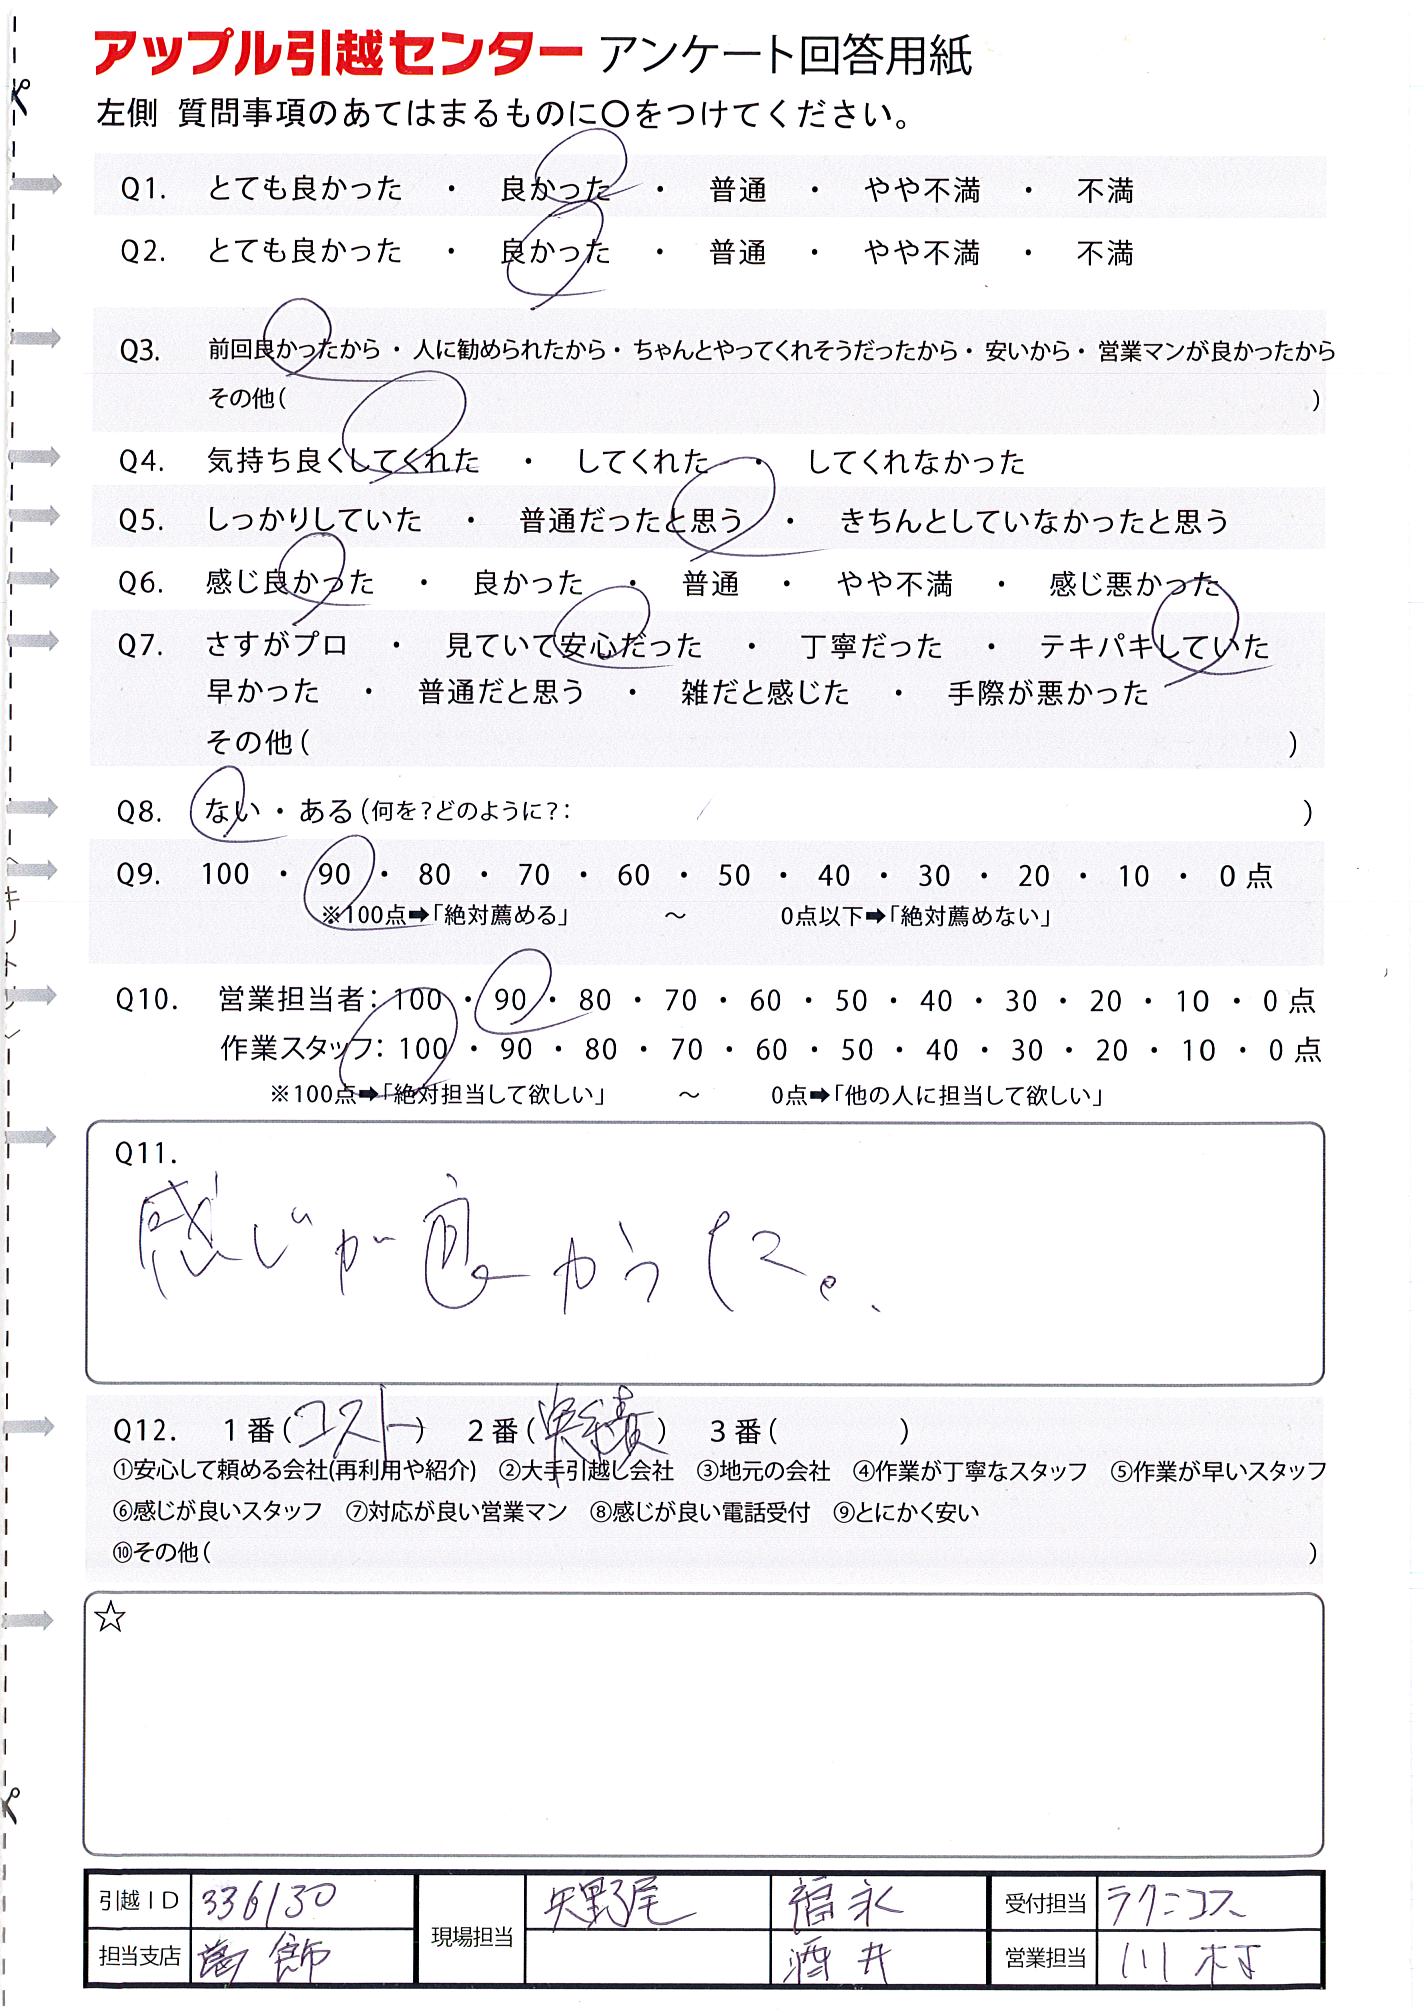 アップル引越センター アンケート回答用紙
左側 質問事項のあてはまるものに〇をつけてください。
Q1. とても良かった ・ 良かった ・ 普通 ・ やや不満 ・ 不満
Q2. とても良かった ・ 良かった ・ 普通 ・ やや不満 ・ 不満
Q3. 前回良かったから ・ 人に勧められたから ・ ちゃんとやってくれそうだったから ・ 安いから ・ 営業マンが良かったから
その他( )
Q4. 気持ち良くしてくれた ・ してくれた ・ してくれなかった
Q5. しっかりしていた ・ 普通だったと思う ・ きちんとしていなかったと思う
Q6. 感じ良かった ・ 良かった ・ 普通 ・ やや不満 ・ 感じ悪かった
Q7. さすがプロ ・ 見ていて安心だった ・ 丁寧だった ・ テキパキしていた
早かった ・ 普通だと思う ・ 雑だと感じた ・ 手際が悪かった
その他( )
Q8. ない ・ ある(何を?どのように?: )
Q9. 100 ・ 90 ・ 80 ・ 70 ・ 60 ・ 50 ・ 40 ・ 30 ・ 20 ・ 10 ・ 0 点
※100点➡「絶対薦める」 ～ 0点以下➡「絶対薦めない」
キリトリ
Q10. 営業担当者: 100 ・ 90 ・ 80 ・ 70 ・ 60 ・ 50 ・ 40 ・ 30 ・ 20 ・ 10 ・ 0 点
作業スタッフ: 100 ・ 90 ・ 80 ・ 70 ・ 60 ・ 50 ・ 40 ・ 30 ・ 20 ・ 10 ・ 0 点
※100点➡「絶対担当して欲しい」 ～ 0点➡「他の人に担当して欲しい」
Q11.
感じが良かった。
Q12. 1番(コスト) 2番(実績) 3番( )
①安心して頼める会社(再利用や紹介) ②大手引越し会社 ③地元の会社 ④作業が丁寧なスタッフ ⑤作業が早いスタッフ
⑥感じが良いスタッフ ⑦対応が良い営業マン ⑧感じが良い電話受付 ⑨とにかく安い
⑩その他( )
☆
引越ID 336130 現場担当 矢野尾 福永 受付担当 ラクニコス
担当支店 葛飾 酒井 営業担当 川村